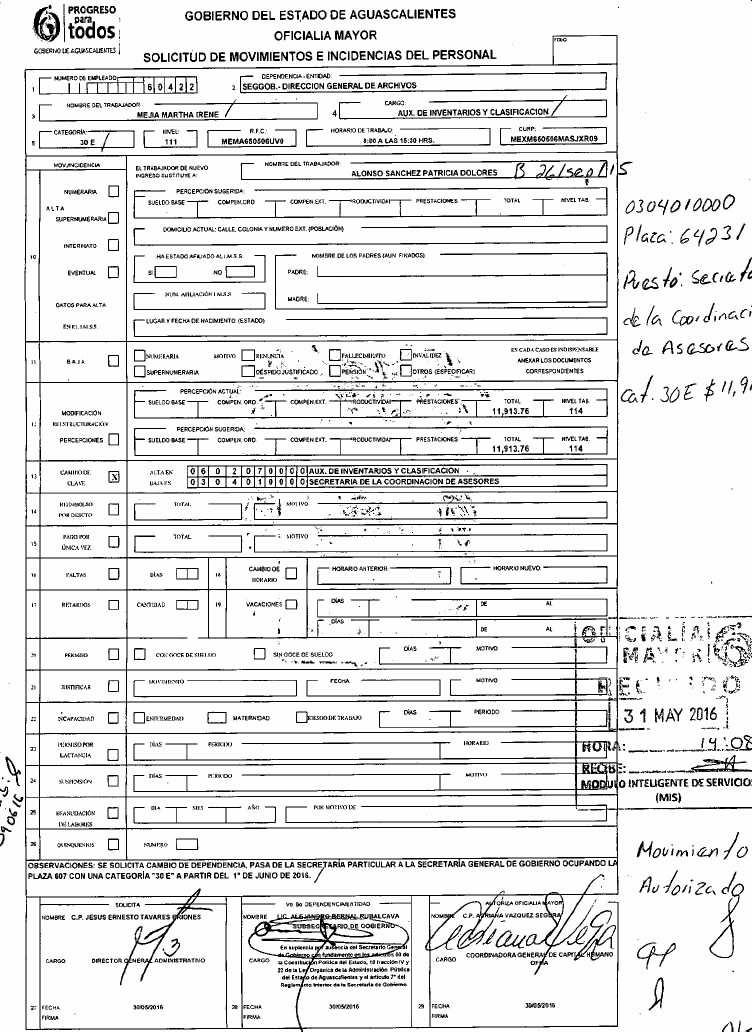 PROGRESO
para
todos
GOBIERNO DE AGUASCALIENTES
GOBIERNO DEL ESTADO DE AGUASCALIENTES
OFICIALIA MAYOR
SOLICITUD DE MOVIMIENTOS E INCIDENCIAS DEL PERSONAL
FOLIO
NUMERO DE EMPLEADO
DEPENDENCIA - ENTIDAD:
1 60422 2 SEGGOB.- DIRECCION GENERAL DE ARCHIVOS
NOMBRE DEL TRABAJADOR: CARGO:
3 MEJIA MARTHA IRENE 4 AUX. DE INVENTARIOS Y CLASIFICACION
CATEGORÍA: NIVEL: R.F.C.: HORARIO DE TRABAJO: CURP:
5 30 E 111 MEMA650506UV0 8:00 A LAS 15:30 HRS. MEXM650506MASJXR09
MOV./INCIDENCIA
EL TRABAJADOR DE NUEVO INGRESO SUSTITUYE A:
NOMBRE DEL TRABAJADOR:
ALONSO SANCHEZ PATRICIA DOLORES B 26/sep/15
NUMERARIA
PERCEPCIÓN SUGERIDA:
SUELDO BASE COMPEN.ORD COMPEN EXT. PRODUCTIVIDAD PRESTACIONES TOTAL NIVEL TAB.
ALTA
SUPERNUMERARIA
0304010000
DOMICILIO ACTUAL: CALLE, COLONIA Y NUMERO EXT. (POBLACIÓN)
Plaza: 64231
INTERINATO
10
HA ESTADO AFILIADO AL I.M.S.S.
NOMBRE DE LOS PADRES (AUN FINADOS):
EVENTUAL
SI NO PADRE:
Puesto:
NUM. AFILIACIÓN I.M.S.S
MADRE:
DATOS PARA ALTA
EN EL I.M.S.S.
LUGAR Y FECHA DE NACIMIENTO: (ESTADO)
de la
de Asesores
11 BAJA
NUMERARIA MOTIVO RENUNCIA FALLECIMIENTO INVALIDEZ
SUPERNUMERARIA DESPIDO JUSTIFICADO PENSIÓN OTROS (ESPECIFICAR)
EN CADA CASO ES INDISPENSABLE
ANEXAR LOS DOCUMENTOS
CORRESPONDIENTES
Cat. 30E
PERCEPCIÓN ACTUAL:
SUELDO BASE COMPEN. ORD. COMPEN.EXT. PRODUCTIVIDAD PRESTACIONES TOTAL NIVEL TAB.
11,913.76 114
MODIFICACIÓN
12 REESTRUCTURACIÓN
PERCEPCIONES
PERCEPCIÓN SUGERIDA:
SUELDO BASE COMPEN. ORD. COMPEN.EXT. PRODUCTIVIDAD PRESTACIONES TOTAL NIVEL TAB.
11,913.76 114
13 CAMBIO DE CLAVE X
ALTA EN 0602070000 AUX. DE INVENTARIOS Y CLASIFICACION
BAJA EN 0304010000 SECRETARIA DE LA COORDINACION DE ASESORES
14 REEMBOLSO POR DESCTO TOTAL MOTIVO
15 PAGO POR ÚNICA VEZ TOTAL MOTIVO
16 FALTAS DÍAS 18 CAMBIO DE HORARIO HORARIO ANTERIOR HORARIO NUEVO:
17 RETARDOS CANTIDAD 19 VACACIONES DÍAS DE AL
DÍAS DE AL
20 PERMISO CON GOCE DE SUELDO SIN GOCE DE SUELDO DÍAS MOTIVO
21 JUSTIFICAR MOVIMIENTO FECHA MOTIVO
22 INCAPACIDAD ENFERMEDAD MATERNIDAD RIESGO DE TRABAJO DÍAS PERIODO
23 PERMISO POR LACTANCIA DÍAS PERIODO HORARIO
24 SUSPENSIÓN DÍAS PERIODO MOTIVO
25 REANUDACIÓN DE LABORES DIA MES AÑO POR MOTIVO DE
26 QUINQUENIOS NUMERO
OFICIALIA
MAYOR
RECIBIDO
31 MAY 2016
HORA: 14:08
RECIBE:
MODULO INTELIGENTE DE SERVICIOS
(MIS)
OBSERVACIONES: SE SOLICITA CAMBIO DE DEPENDENCIA, PASA DE LA SECRETARÍA PARTICULAR A LA SECRETARÍA GENERAL DE GOBIERNO OCUPANDO LA
PLAZA 607 CON UNA CATEGORÍA "30 E" A PARTIR DEL 1° DE JUNIO DE 2016.
Movimiento
Autorizado
SOLICITA
NOMBRE C.P. JESUS ERNESTO TAVARES BRIONES
CARGO DIRECTOR GENERAL ADMINISTRATIVO
27 FECHA 30/05/2016
FIRMA
Vo. Bo. DEPENDENCIA/ENTIDAD
NOMBRE LIC. ALEJANDRO BERNAL RUBALCAVA
SUBSECRETARIO DE GOBIERNO
CARGO
En suplencia por ausencia del Secretario General
de Gobierno con fundamento en los artículos 50 de
la Constitución Política del Estado, 10 fracción IV y
22 de la Ley Orgánica de la Administración Pública
del Estado de Aguascalientes y el artículo 7° del
Reglamento Interior de la Secretaría de Gobierno
28 FECHA 30/05/2016
FIRMA
AUTORIZA OFICIALIA MAYOR
NOMBRE C.P. ADRIANA VAZQUEZ SEGURA
CARGO COORDINADORA GENERAL DE CAPITAL HUMANO
OFMA
29 FECHA 30/05/2016
FIRMA